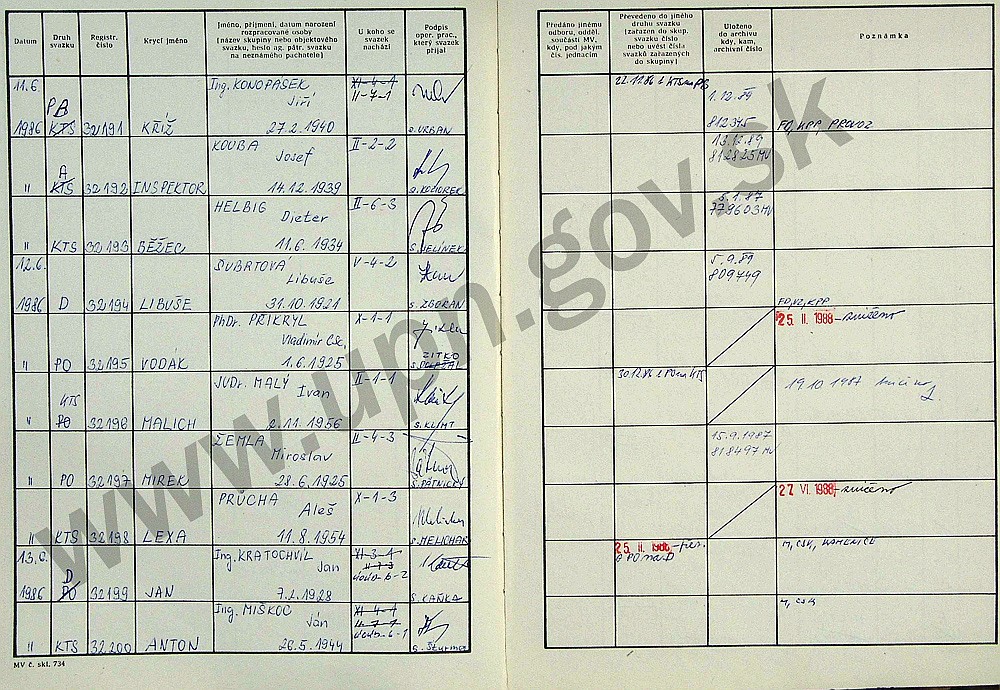 Datum
Druh svazku
Registr. číslo
Krycí jméno
Jméno, příjmení, datum narození rozpracované osoby
(název skupiny nebo objektového svazku, heslo ag. pátr. svazku na neznámého pachatele)
U koho se svazek nachází
Podpis oper. prac., který svazek přijal
Předáno jinému odboru, odděl. součásti MV, kdy, pod jakým čís. jednacím
Převedeno do jiného druhu svazku (zařazen do skup. svazku číslo nebo uvést čísla svazků zařazených do skupiny)
Uloženo do archivu kdy, kam, archivní číslo
Poznámka
11.6. Ing. KONOPÁSEK XI-4-1 22.12.86 z KTS na PB 1.12.89
PB Jiří II-7-1
1986 KTS 32191 KŘÍŽ 27.2.1940 s. URBAN 812345 FO, KPP, PROVOZ
KOUBA II-2-2 13.12.89
A Josef 812825 MV
" KTS 32192 INSPEKTOR 14.12.1939 s. KOCIOREK
HELBIG II-6-3 5.1.87
Dieter 779603 MV
" KTS 32193 BĚŽEC 11.6.1934 s. JELÍNEK
12.6. ŠUBRTOVÁ V-4-2 5.9.89
Libuše 809749
1986 D 32194 LIBUŠE 31.10.1921 s. ZGORAN FO, VZ, KPP
PhDr. PŘIKRYL X-1-1 25. II. 1988 - zničeno
Vladimír CSc.
ŽITKO
" PO 32195 VODÁK 1.6.1925
JUDr. MALÝ II-1-1 30.12.86 z PO na KTS
KTS Ivan 19.10.1987 zničeno
" PO 32196 MALICH 2.11.1956 s. KLIMT
ŽEMLA II-4-3 15.9.1987
Miroslav 818497 MV
" PO 32197 MIREK 28.6.1925 s. PÁTNICKÝ
PRŮCHA X-1-3 27. VI. 1988 - zničeno
Aleš
" KTS 32198 LEXA 11.8.1954 s. MELICHAR
13.6. Ing. KRATOCHVIL XI-3-1 25. II. 1986 - přer. M, ČSK, KAMENICE
D Jan II-7-3 z PO na D
1986 PO 32199 JAN 7.2.1928 s. KAŇKA
Ing. MIŠKOC XI-4-1 M, ČSK
Ján II-7-1
" KTS 32200 ANTON 26.5.1944 s. Šturma
MV č. skl. 734
www.upn.gov.sk